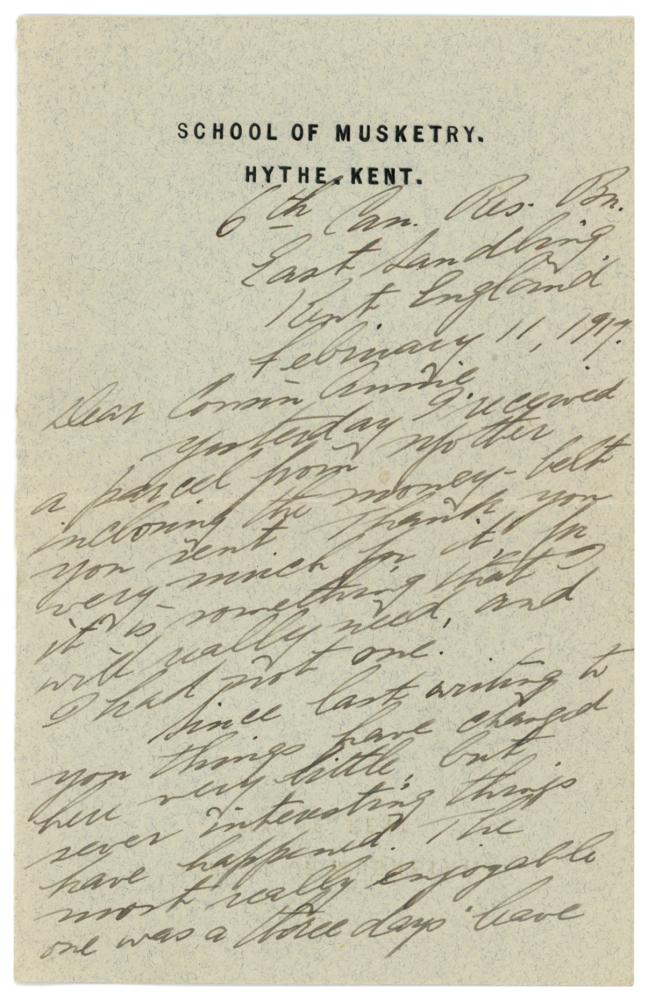 SCHOOL OF MUSKETRY.
HYTHE. KENT.
6th Can. Res. Bn.
East Sandling
Kent England
February 11, 1917.
Dear Cousin Annie
Yesterday I received
a parcel from Mother
inclosing the money-belt
you sent. Thank you
very much for it for
it is something that I
will really need, and
I had not one.
Since last writing to
you things have changed
here very little, but
sever interesting things
have happened. The
most really enjoyable
one was a three days leave